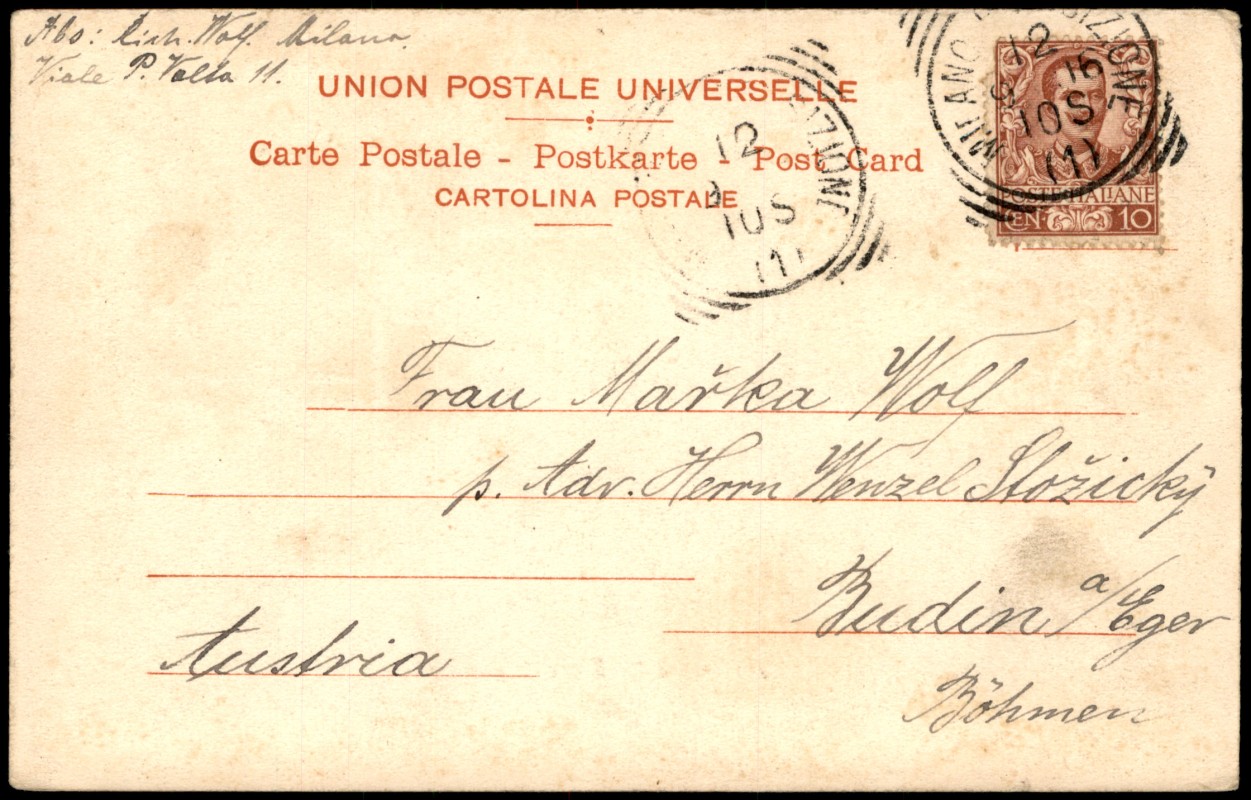 Abs: Rich. Wolf. Milano.
Viale P. Volta 11.
UNION POSTALE UNIVERSELLE
Carte Postale - Postkarte - Post Card
CARTOLINA POSTALE
12
10S
(1)
MILANO
12
16
10S
(1)
POSTE ITALIANE
CEN 10
Frau Mařka Wolf
p. Adr. Herrn Wenzel Stožický
Budin a/Eger
Austria
Böhmen